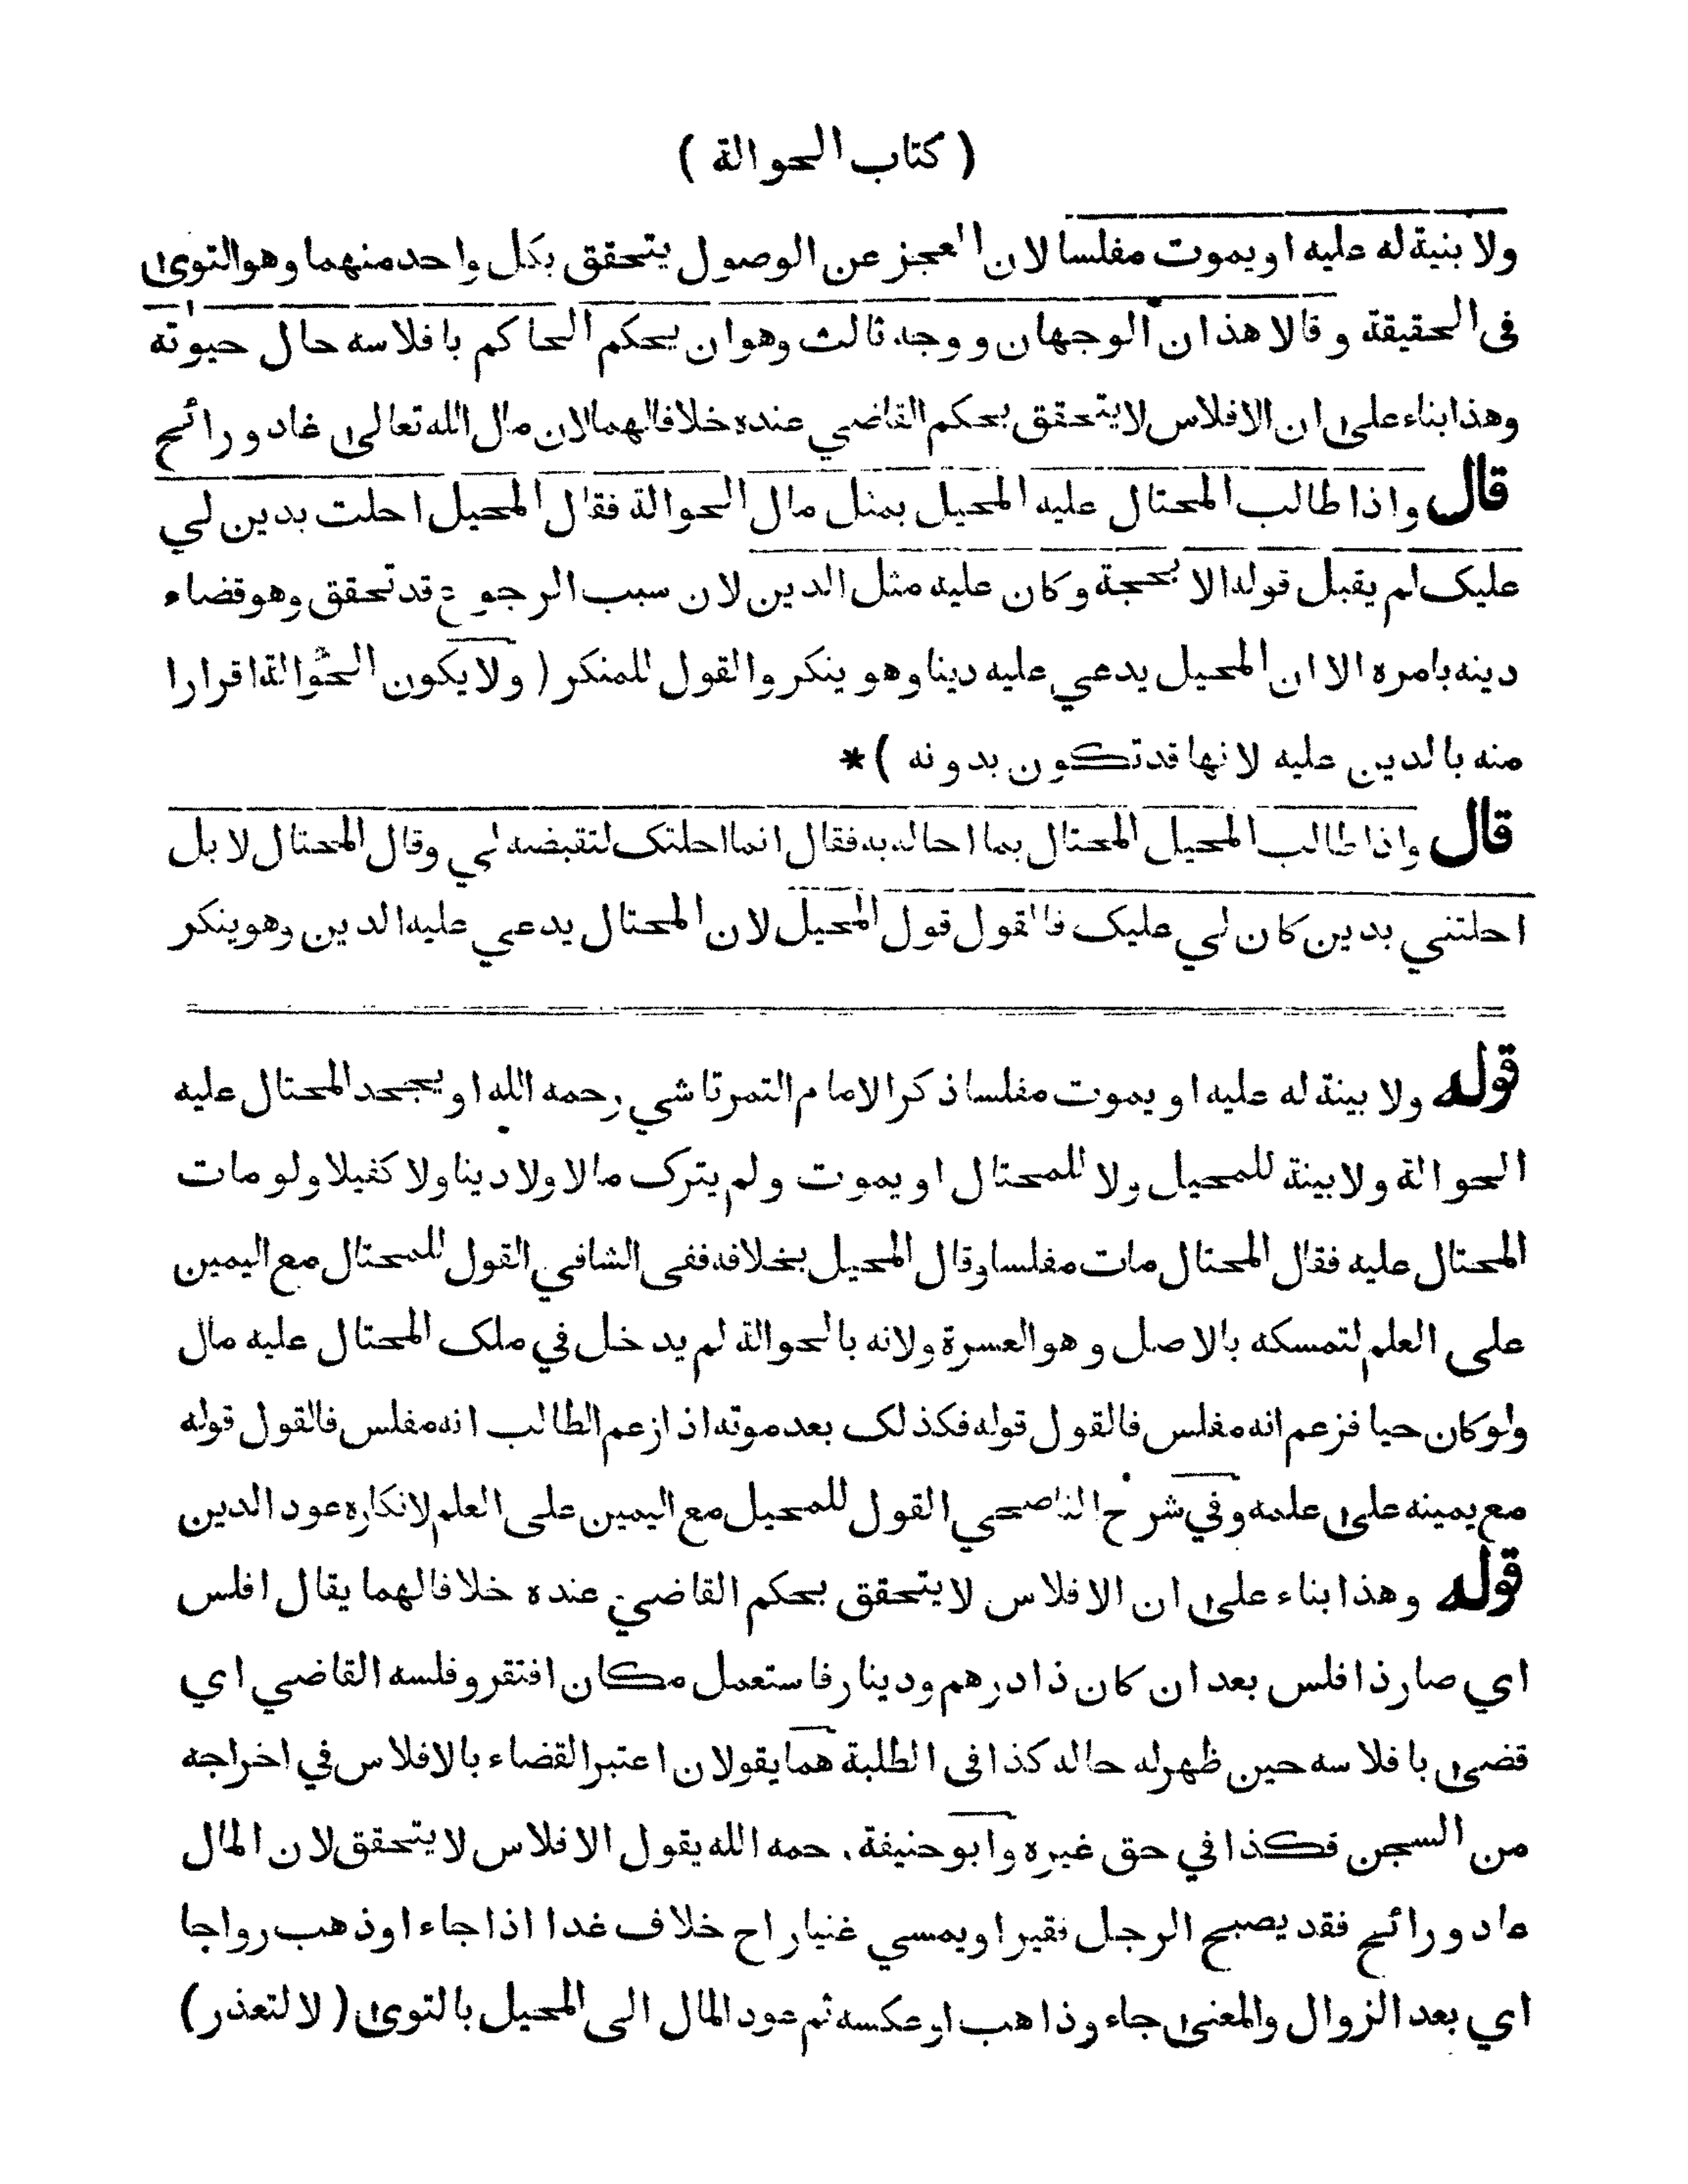 ( كتاب الحوالة )
ولا بنية له عليه او يموت مفلسا لان العجز عن الوصول يتحقق بكل واحد منهما وهو التوى
فى الحقيقة وقالا هذان الوجهان ووجه ثالث وهو ان يحكم الحاكم بافلاسه حال حيوته
وهذا بناء على ان الافلاس لا يتحقق بحكم القاضي عنده خلافا لهما لان مال الله تعالى غاد ورائح
قال واذا طالب المحتال عليه المحيل بمثل مال الحوالة فقال المحيل احلت بدين لي
عليك لم يقبل قوله الا بحجة وكان عليه مثل الدين لان سبب الرجوع قد تحقق وهو قضاء
دينه بامره الا ان المحيل يدعي عليه دينا وهو ينكر والقول للمنكر ( ولا يكون الحوالة اقرارا
منه بالدين عليه لانها قد تكون بدونه ) *
قال واذا طالب المحيل المحتال بما احاله به فقال انما احلتك لتقبضه لي وقال المحتال لا بل
احلتني بدين كان لي عليك فالقول قول المحيل لان المحتال يدعي عليه الدين وهو ينكر
قوله ولا بينة له عليه او يموت مفلسا ذكر الامام التمرتاشي رحمه الله او يجحد المحتال عليه
الحوالة ولا بينة للمحيل ولا للمحتال او يموت ولم يترك مالا ولا دينا ولا كفيلا ولو مات
المحتال عليه فقال المحتال مات مفلسا وقال المحيل بخلافه ففى الشافي القول للمحتال مع اليمين
على العلم لتمسكه بالاصل وهو العسرة ولانه بالحوالة لم يدخل في ملك المحتال عليه مال
ولو كان حيا فزعم انه مفلس فالقول قوله فكذلك بعد موته اذا زعم الطالب انه مفلس فالقول قوله
مع يمينه على علمه وفي شرح الناصحي القول للمحيل مع اليمين على العلم لانكاره عود الدين
قوله وهذا بناء على ان الافلاس لا يتحقق بحكم القاضي عنده خلافا لهما يقال افلس
اي صار ذا فلس بعد ان كان ذا درهم ودينار فاستعمل مكان افتقر وفلسه القاضي اي
قضى بافلاسه حين ظهر له حاله كذا فى الطلبة هما يقولان اعتبر القضاء بالافلاس في اخراجه
من السجن فكذا في حق غيره وابو حنيفة رحمه الله يقول الافلاس لا يتحقق لان المال
غاد ورائح فقد يصبح الرجل فقيرا ويمسي غنيا راح خلاف غدا اذا جاء او ذهب رواجا
اي بعد الزوال والمعنى جاء وذاهب او عكسه ثم عود المال الى المحيل بالتوى ( لا لتعذر )